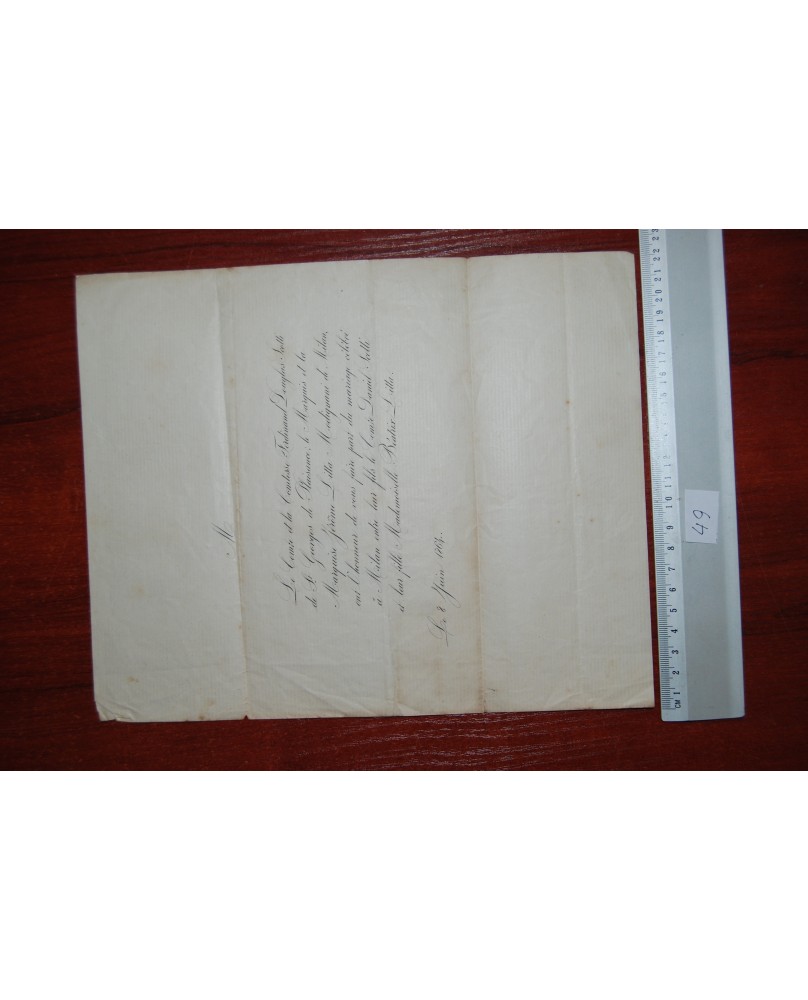 M
Le Comte et la Comtesse Ferdinand Douglas-Scotti
de St Georges de Plaisance, le Marquis et la
Marquise Jérôme Litta Modignani de Milan,
ont l'honneur de vous faire part du mariage célébré
à Milan entre leur fils le Comte Daniel Scotti
et leur fille Mademoiselle Béatrix Litta.
Le 2 Juin 1867.
49
CM 1 2 3 4 5 6 7 8 9 10 11 12 13 14 15 16 17 18 19 20 21 22 23